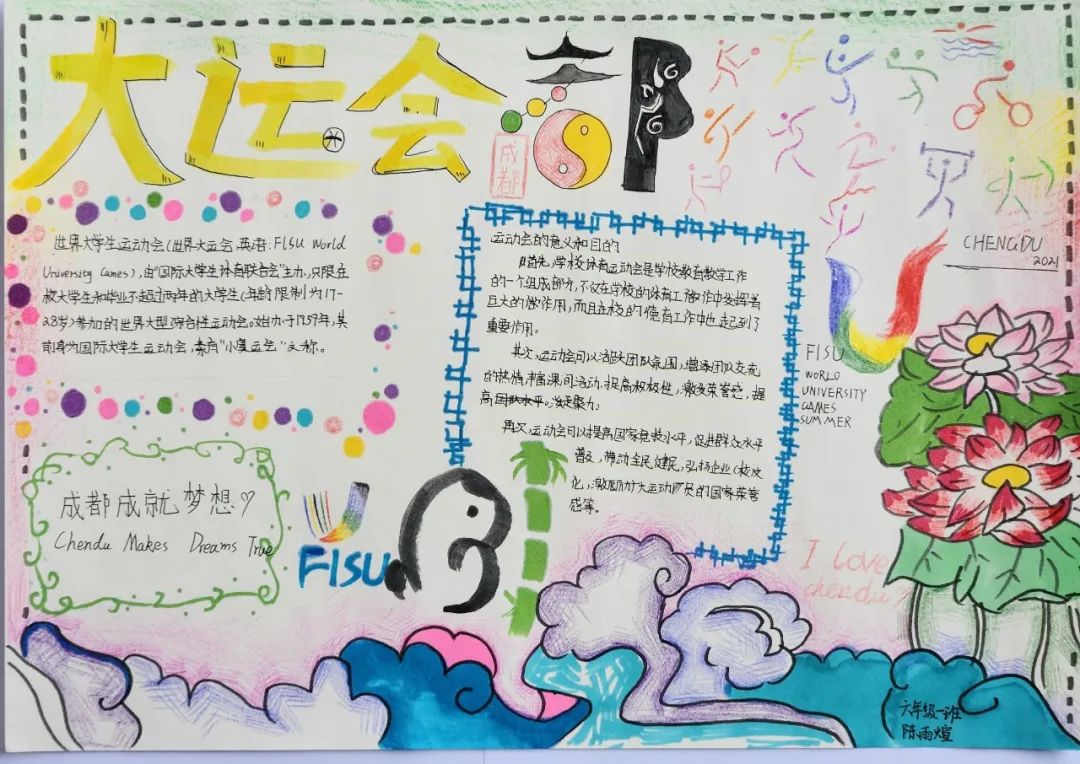 大运会
成都
世界大学生运动会(世界大运会,英语:FISU World
University Games),由"国际大学生体育联合会"主办,只限在
校大学生和毕业不超过两年的大学生(年龄限制为17-
28岁)参加的世界大型综合性运动会。始办于1959年,其
前身为国际大学生运动会,素有"小奥运会"之称。
成都成就梦想
Chendu Makes Dreams True
FISU
运动会的意义和目的
首先,学校体育运动会是学校教育教学工作
的一个组成部分,不仅在学校的体育工作中发挥着
巨大的作用,而且在校的德育工作中也起到了
重要作用。
其次,运动会可以活跃团队氛围,增添团队交流
的热情,丰富课间活动,提高积极性,激发荣誉感,提
高团队水平。凝聚力,
再次,运动会可以提高国家竞技水平,促进群众水平
普及,带动全民健民,弘扬企业(校文
化,激励广大运动员的国家荣誉
感等。
CHENGDU
2021
FISU
WORLD
UNIVERSITY
GAMES
SUMMER
I Love
chendu
六年级一班
陈雨煊